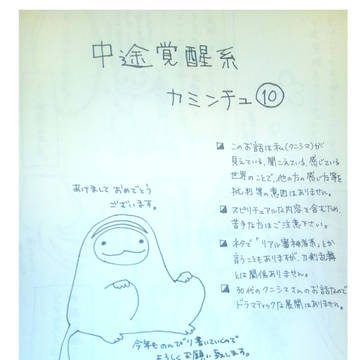 中途覚醒系
カミンチュ⑩
このお話は私(クニシマ)が
見えている、聞こえている、感じている
世界のことで、他の方の思い方等を
批判等の意図はありません。
スピリチュアルな内容を含むため、
苦手な方はご注意下さい。
ネタで「リアル審神者系」とか
言うこともありますが、
とは関係ありません。
30代のクニシマさんのお話なので
ドラマティックな展開はありません。
あけまして おめでとう
ございます。
今年ものんびり書いていくので
よろしくお願い致します。